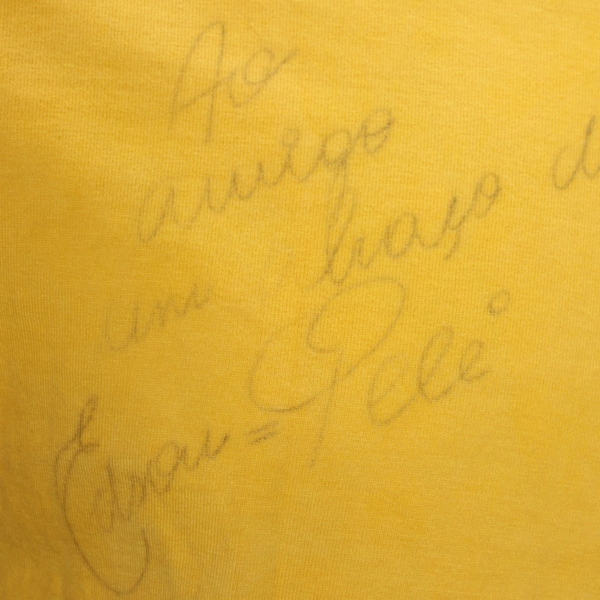 Ao
amigo
um abraço d
Edson = Pelé